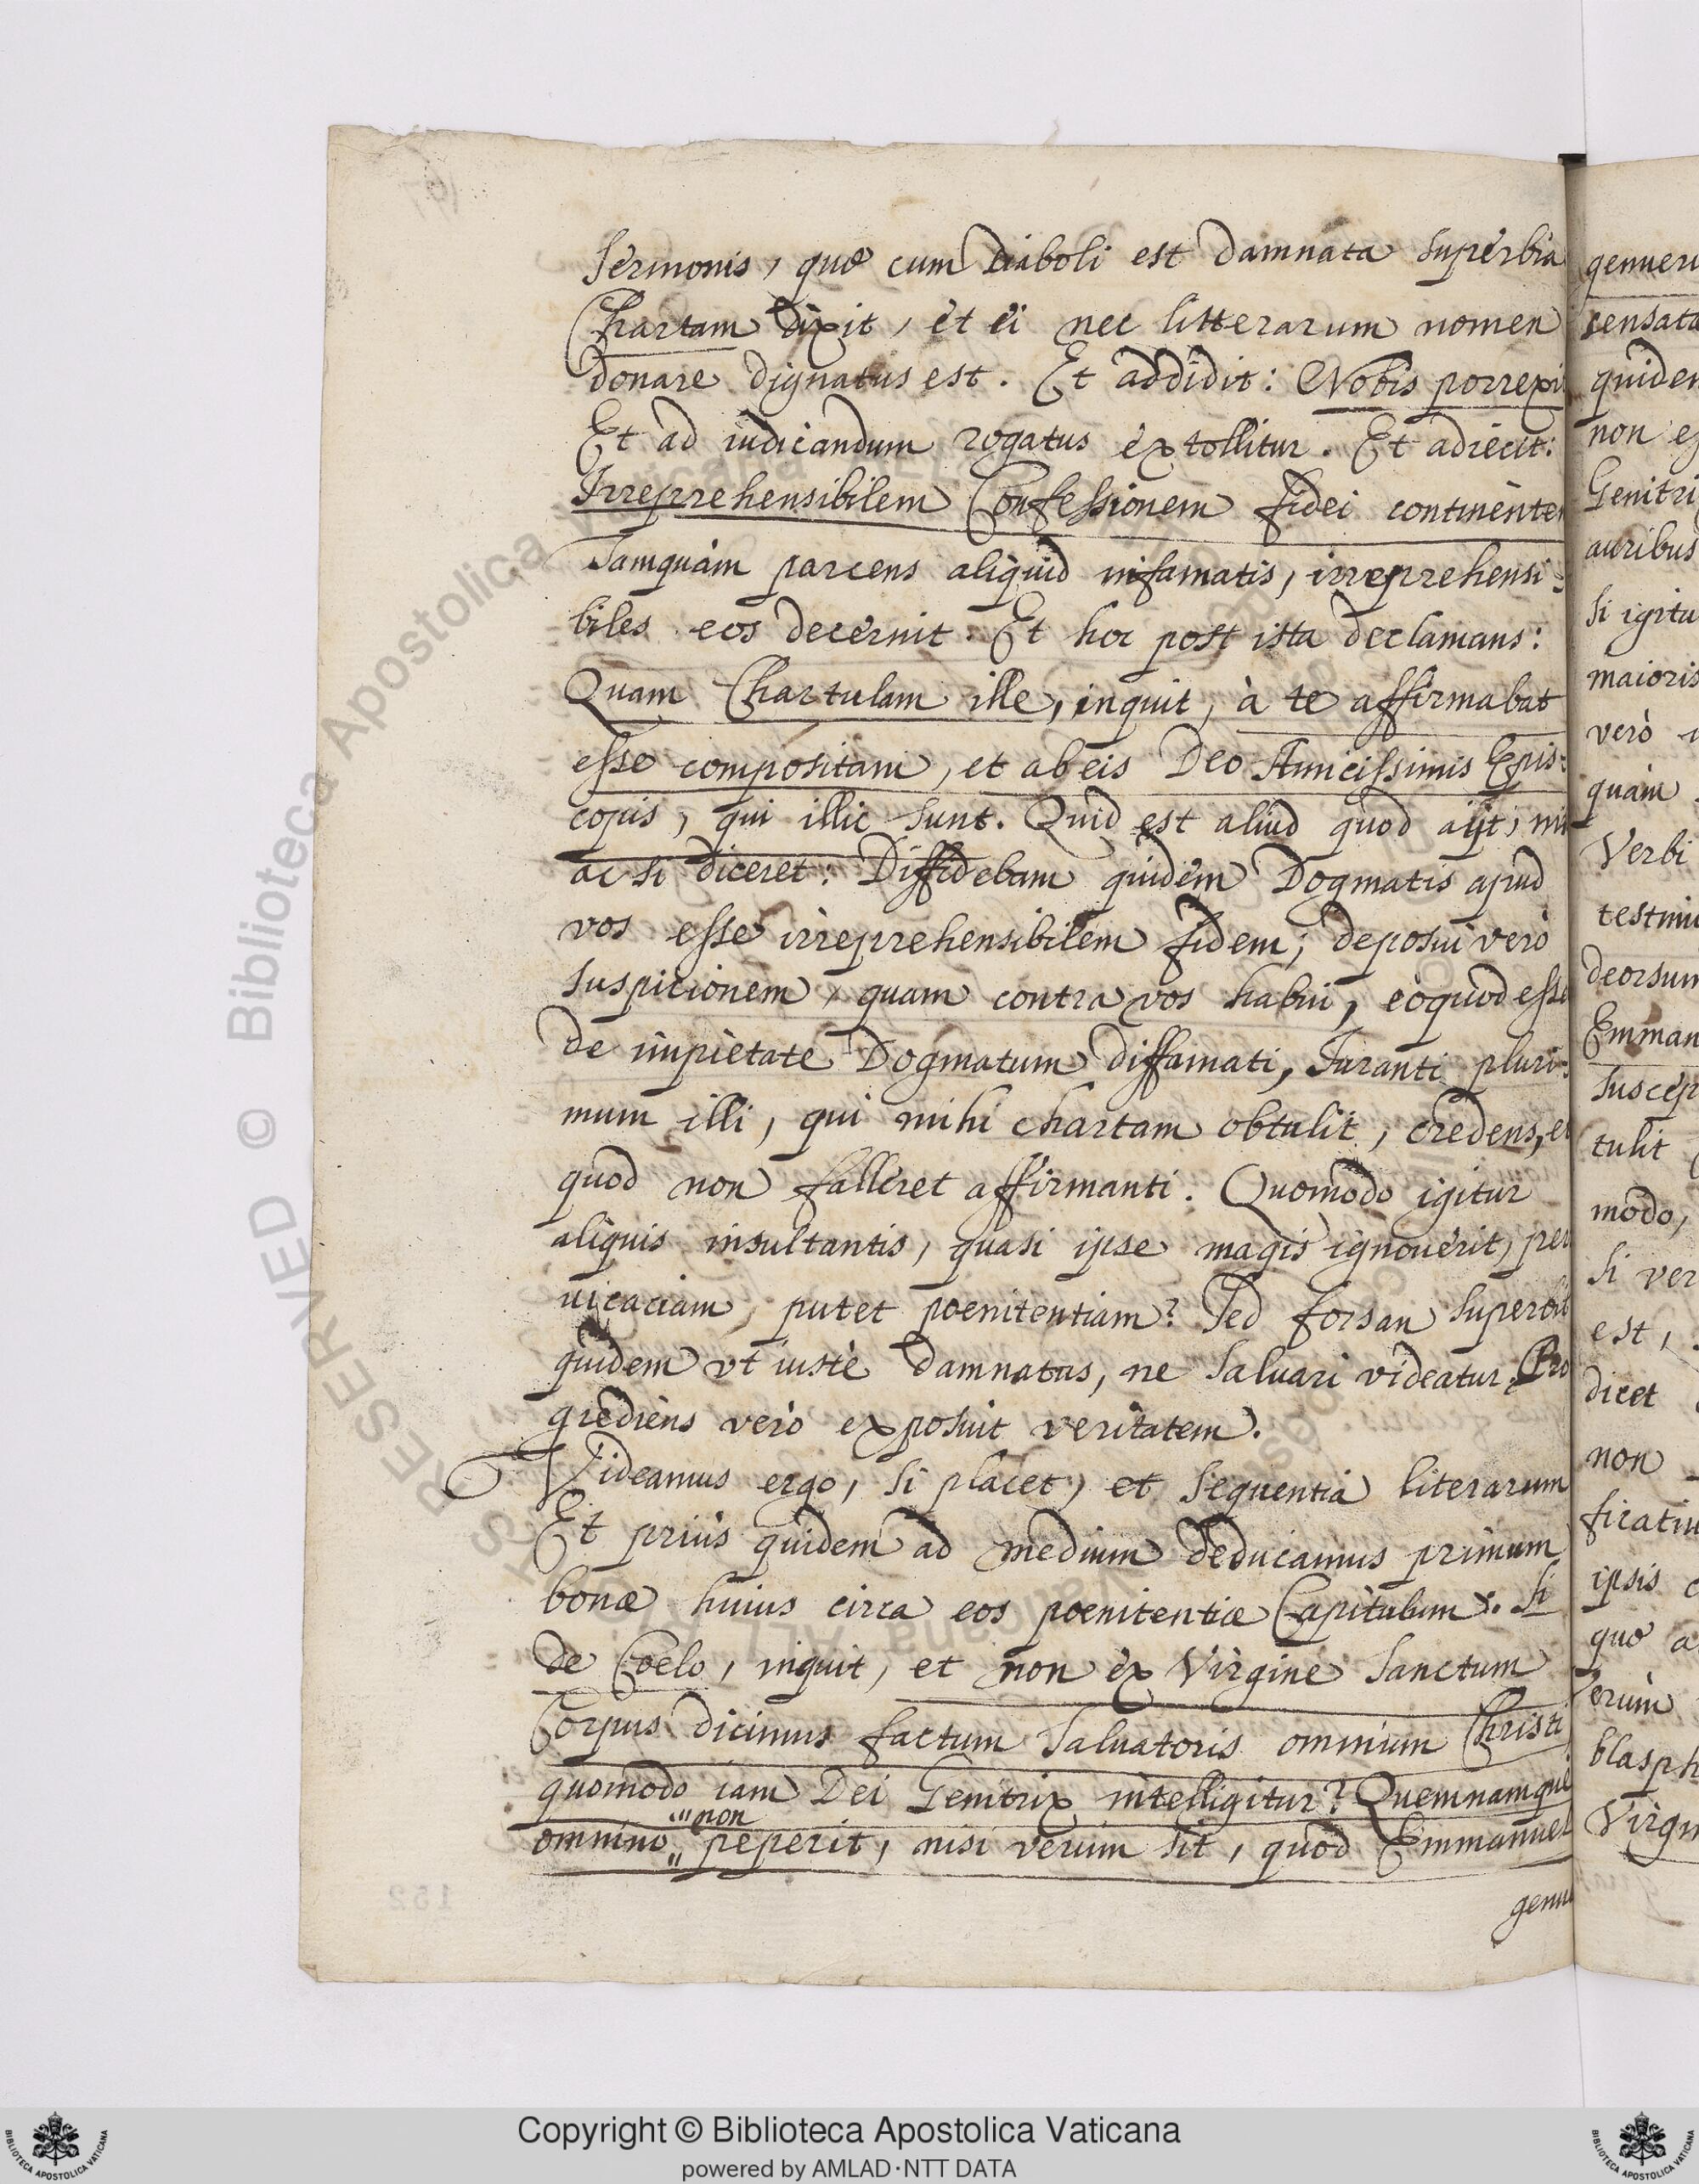 Sermonis, quæ cum Diaboli est damnata superbia
Chartam dixit, et ei nec litterarum nomen
donare dignatus est. Et addidit: Nobis porrexit
Et ad iudicandum rogatus extollitur. Et adiecit:
Irreprehensibilem Confessionem fidei continentem
Tamquàm parcens aliquid infamatis, irreprehensi-
biles eos decernit. Et hoc post ista declamans:
Quam Chartulam ille, inquit, à te affirmabat
esse compositam, et ab eis Deo Amicissimis Epis-
copis, qui illic sunt. Quid est aliud quod ait, ni
ac si diceret: Diffidebam quidem Dogmatis apud
vos esse irreprehensibilem fidem; deposui verò
suspicionem, quam contra vos habui, eoquod esse
de impietate Dogmatum diffamati, Iuranti pluri-
mum illi, qui mihi chartam obtulit, credens, et
quod non falleret affirmanti. Quomodo igitur
aliquis insultantis, quasi ipse magis ignouerit, per
uicaciam, putet poenitentiam? Sed forsan superbit
quidem vt iustè damnatus, ne saluari videatur, Pro
grediens verò exposuit veritatem.
Videamus ergo, si placet, et sequentia literarum
Et priùs quidem ad medium deducamus primum
bonæ huius circa eos poenitentiæ Capitulum. Si
de Coelo, inquit, et non ex Virgine Sanctum
Corpus dicimus factum Saluatoris omnium Christi
quomodo iam Dei Genitrix intelligitur? Quemnamque
non
omnino peperit, nisi verum sit, quod Emmanuel
genu
genuer
sensata
quidem
non
Genitri
auribus
Si igitu
maioris
verò
quàm
Verbi
testim
deorsum
Emman
suscep
tulit
modo,
Si ver
est,
dicet
non
ficatiu
ipsis
quæ a
erum
blasph
Virgin
152
RESERVED © Biblioteca Apostolica Vaticana
Copyright © Biblioteca Apostolica Vaticana
powered by AMLAD·NTT DATA
BIBLIOTECA APOSTOLICA VATICANA
BIBLIOTECA APOSTOLICA VATICANA